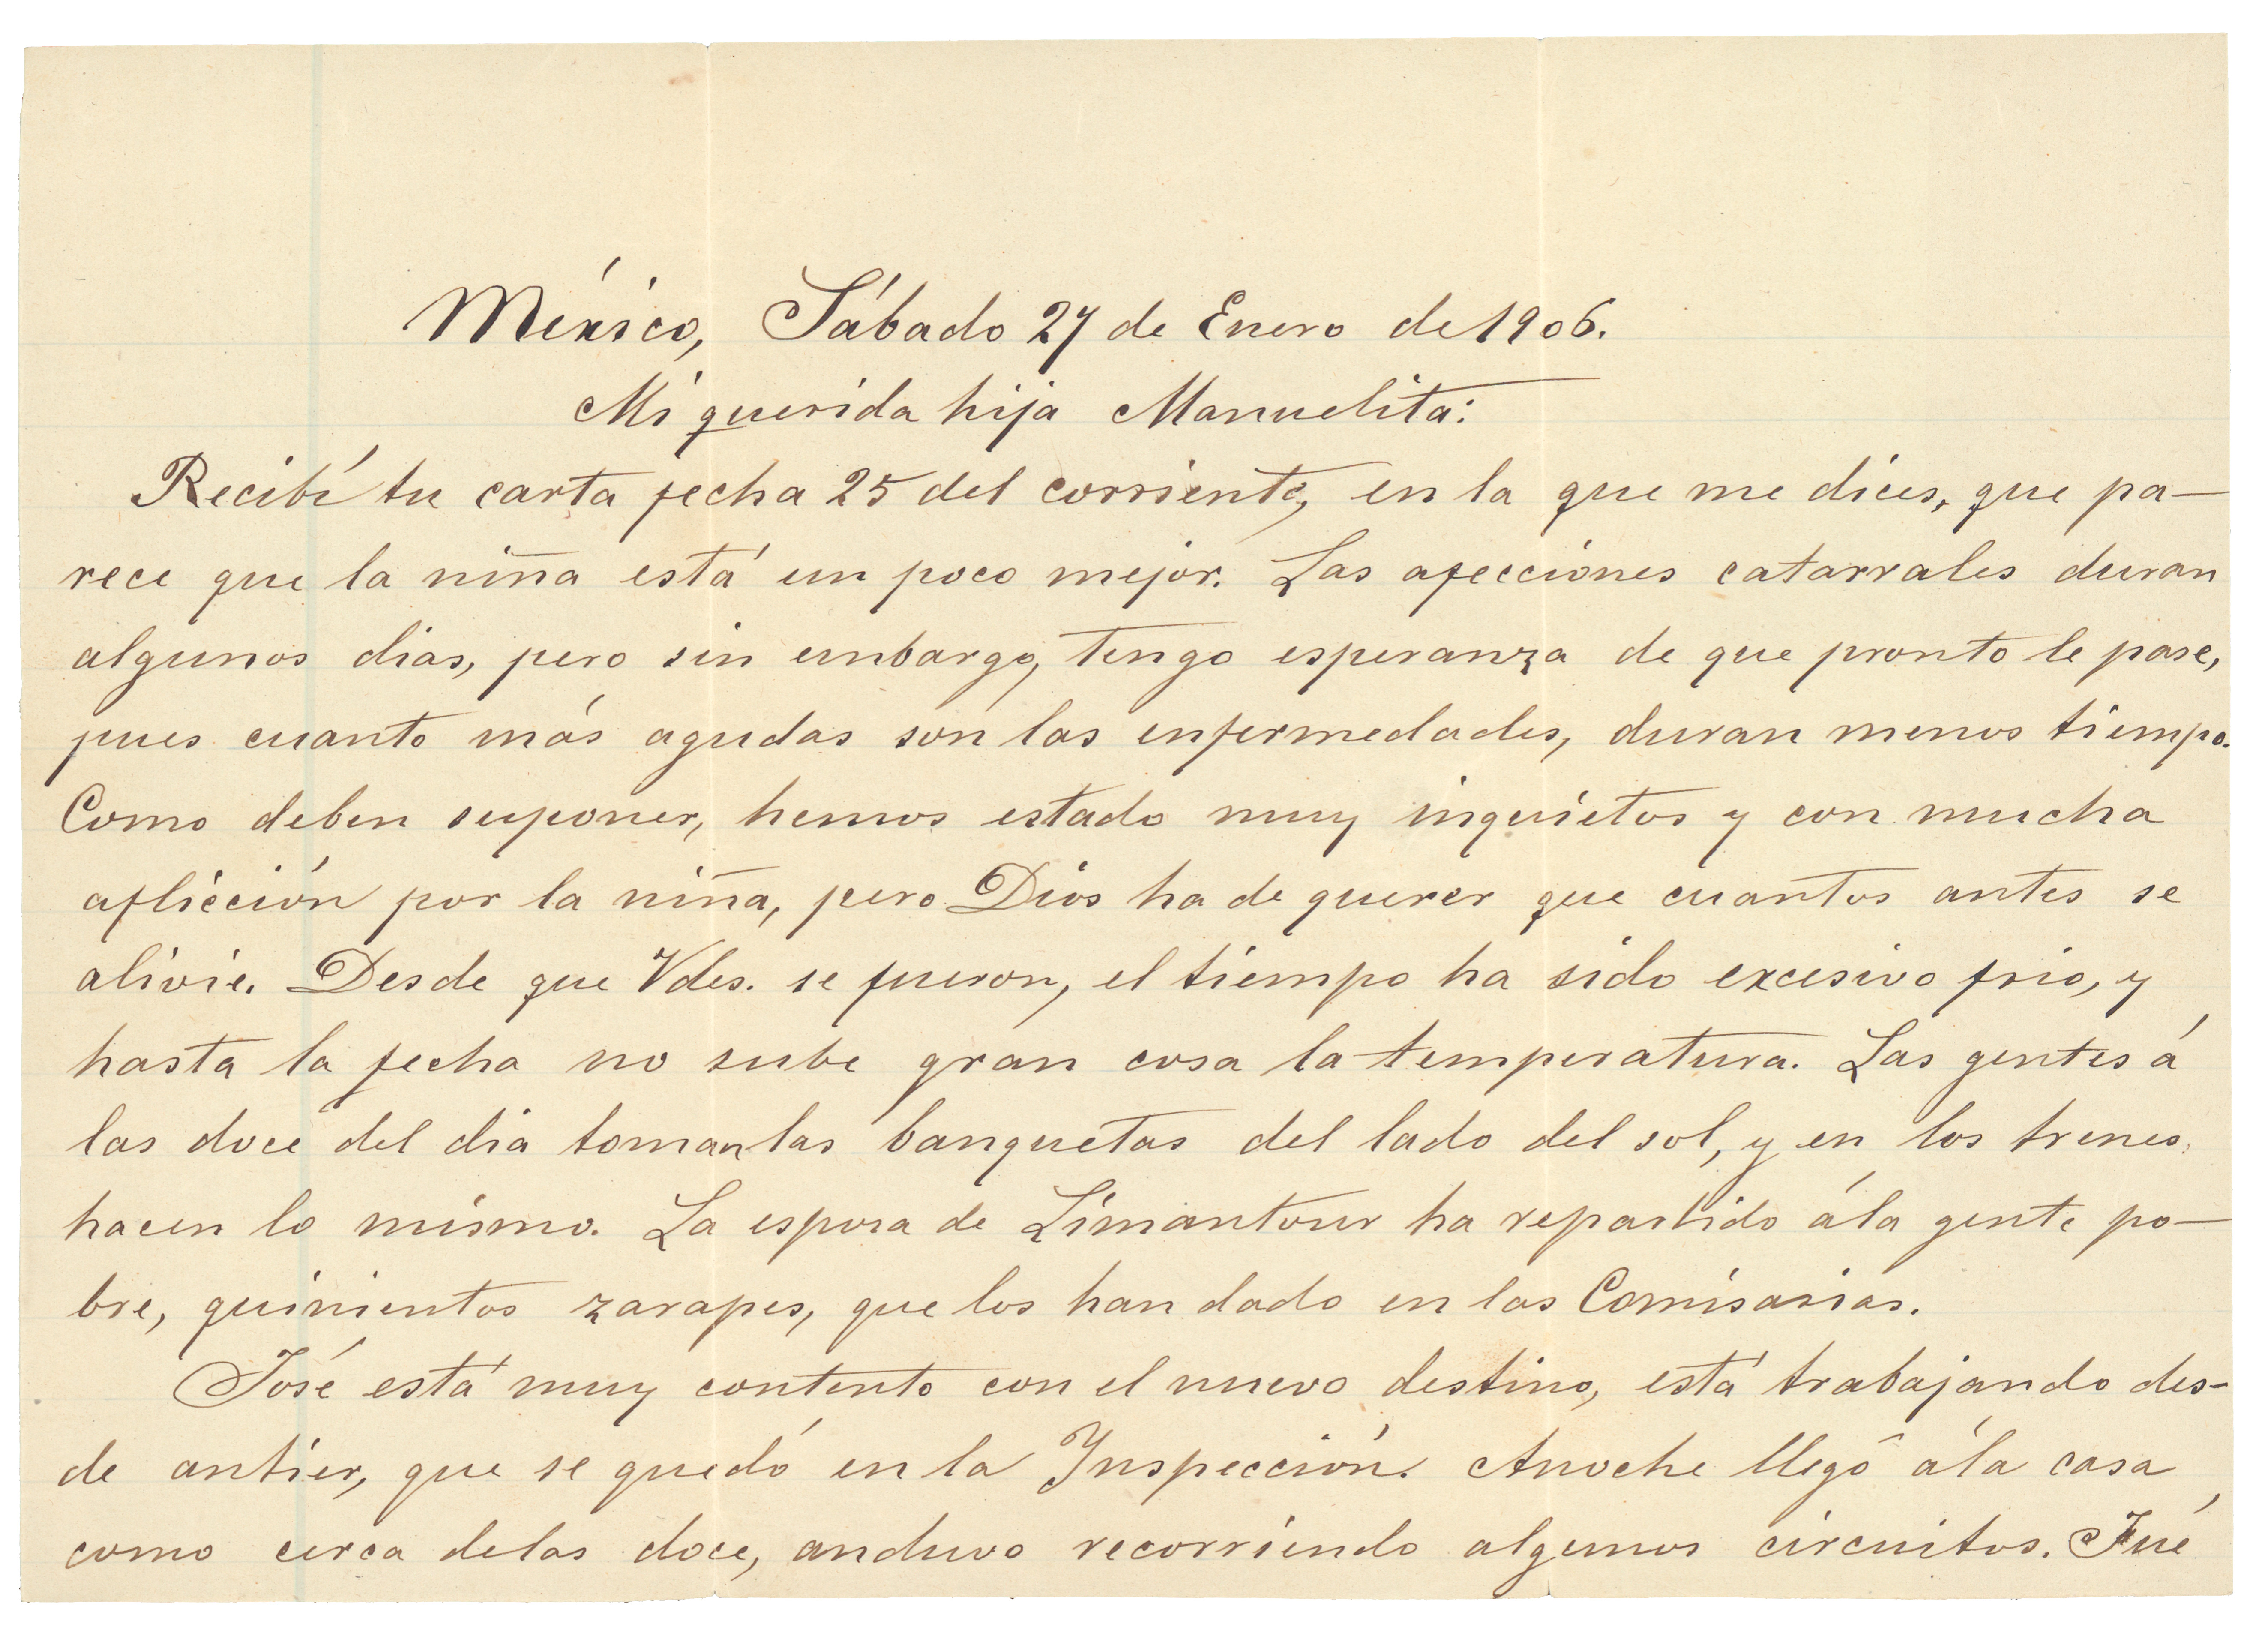 México, Sábado 27 de Enero de 1906.
Mi querida hija Manuelita:
Recibí tu carta fecha 25 del corriente, en la que me dices, que pa—
rece que la niña está un poco mejor. Las afecciones catarrales duran
algunos dias, pero sin embargo, tengo esperanza de que pronto le pase,
pues cuanto más agudas son las enfermedades, duran menos tiempo.
Como deben suponer, hemos estado muy inquietos y con mucha
aflicción por la niña, pero Dios ha de querer que cuantos antes se
alivie. Desde que Vdes. se fueron, el tiempo ha sido excesivo frio, y
hasta la fecha no sube gran cosa la temperatura. Las gentes á
las doce del dia toman las banquetas del lado del sol, y en los trenes
hacen lo mismo. La esposa de Limantour ha repartido á la gente po—
bre, quinientos zarapes, que los han dado en las Comisarias.
José está muy contento con el nuevo destino, está trabajando des-
de antier, que se quedó en la Inspección. Anoche llegó á la casa
como cerca de las doce, anduvo recorriendo algunos circuitos. Fué